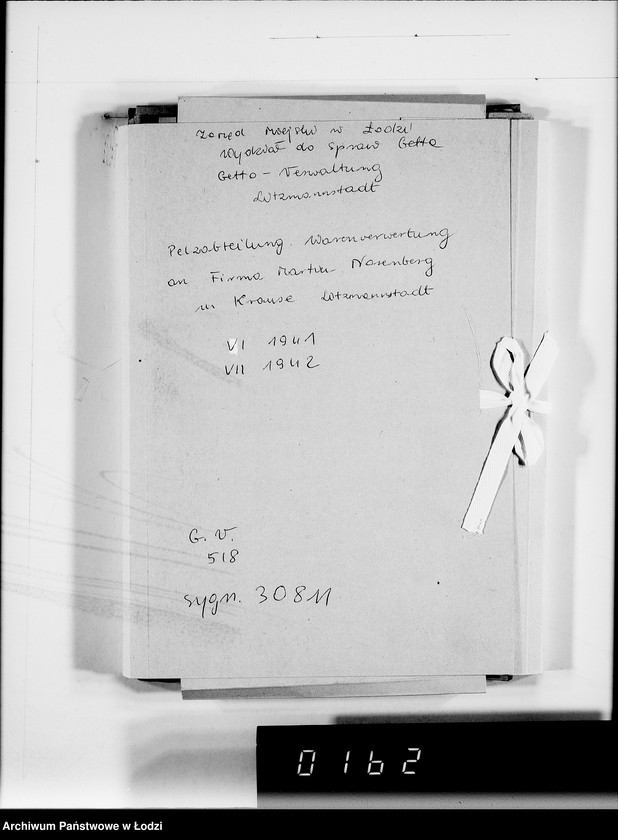 Zarząd Miejski w Łodzi
Wydział do spraw Getta
Getto - Verwaltung
Litzmannstadt
Pelzabteilung. Warenverwertung
an Firma Martin Nasenberg
in Krause Litzmannstadt
VI 1941
VII 1942
G. V.
518
sygn. 30811
0162
Archiwum Państwowe w Łodzi